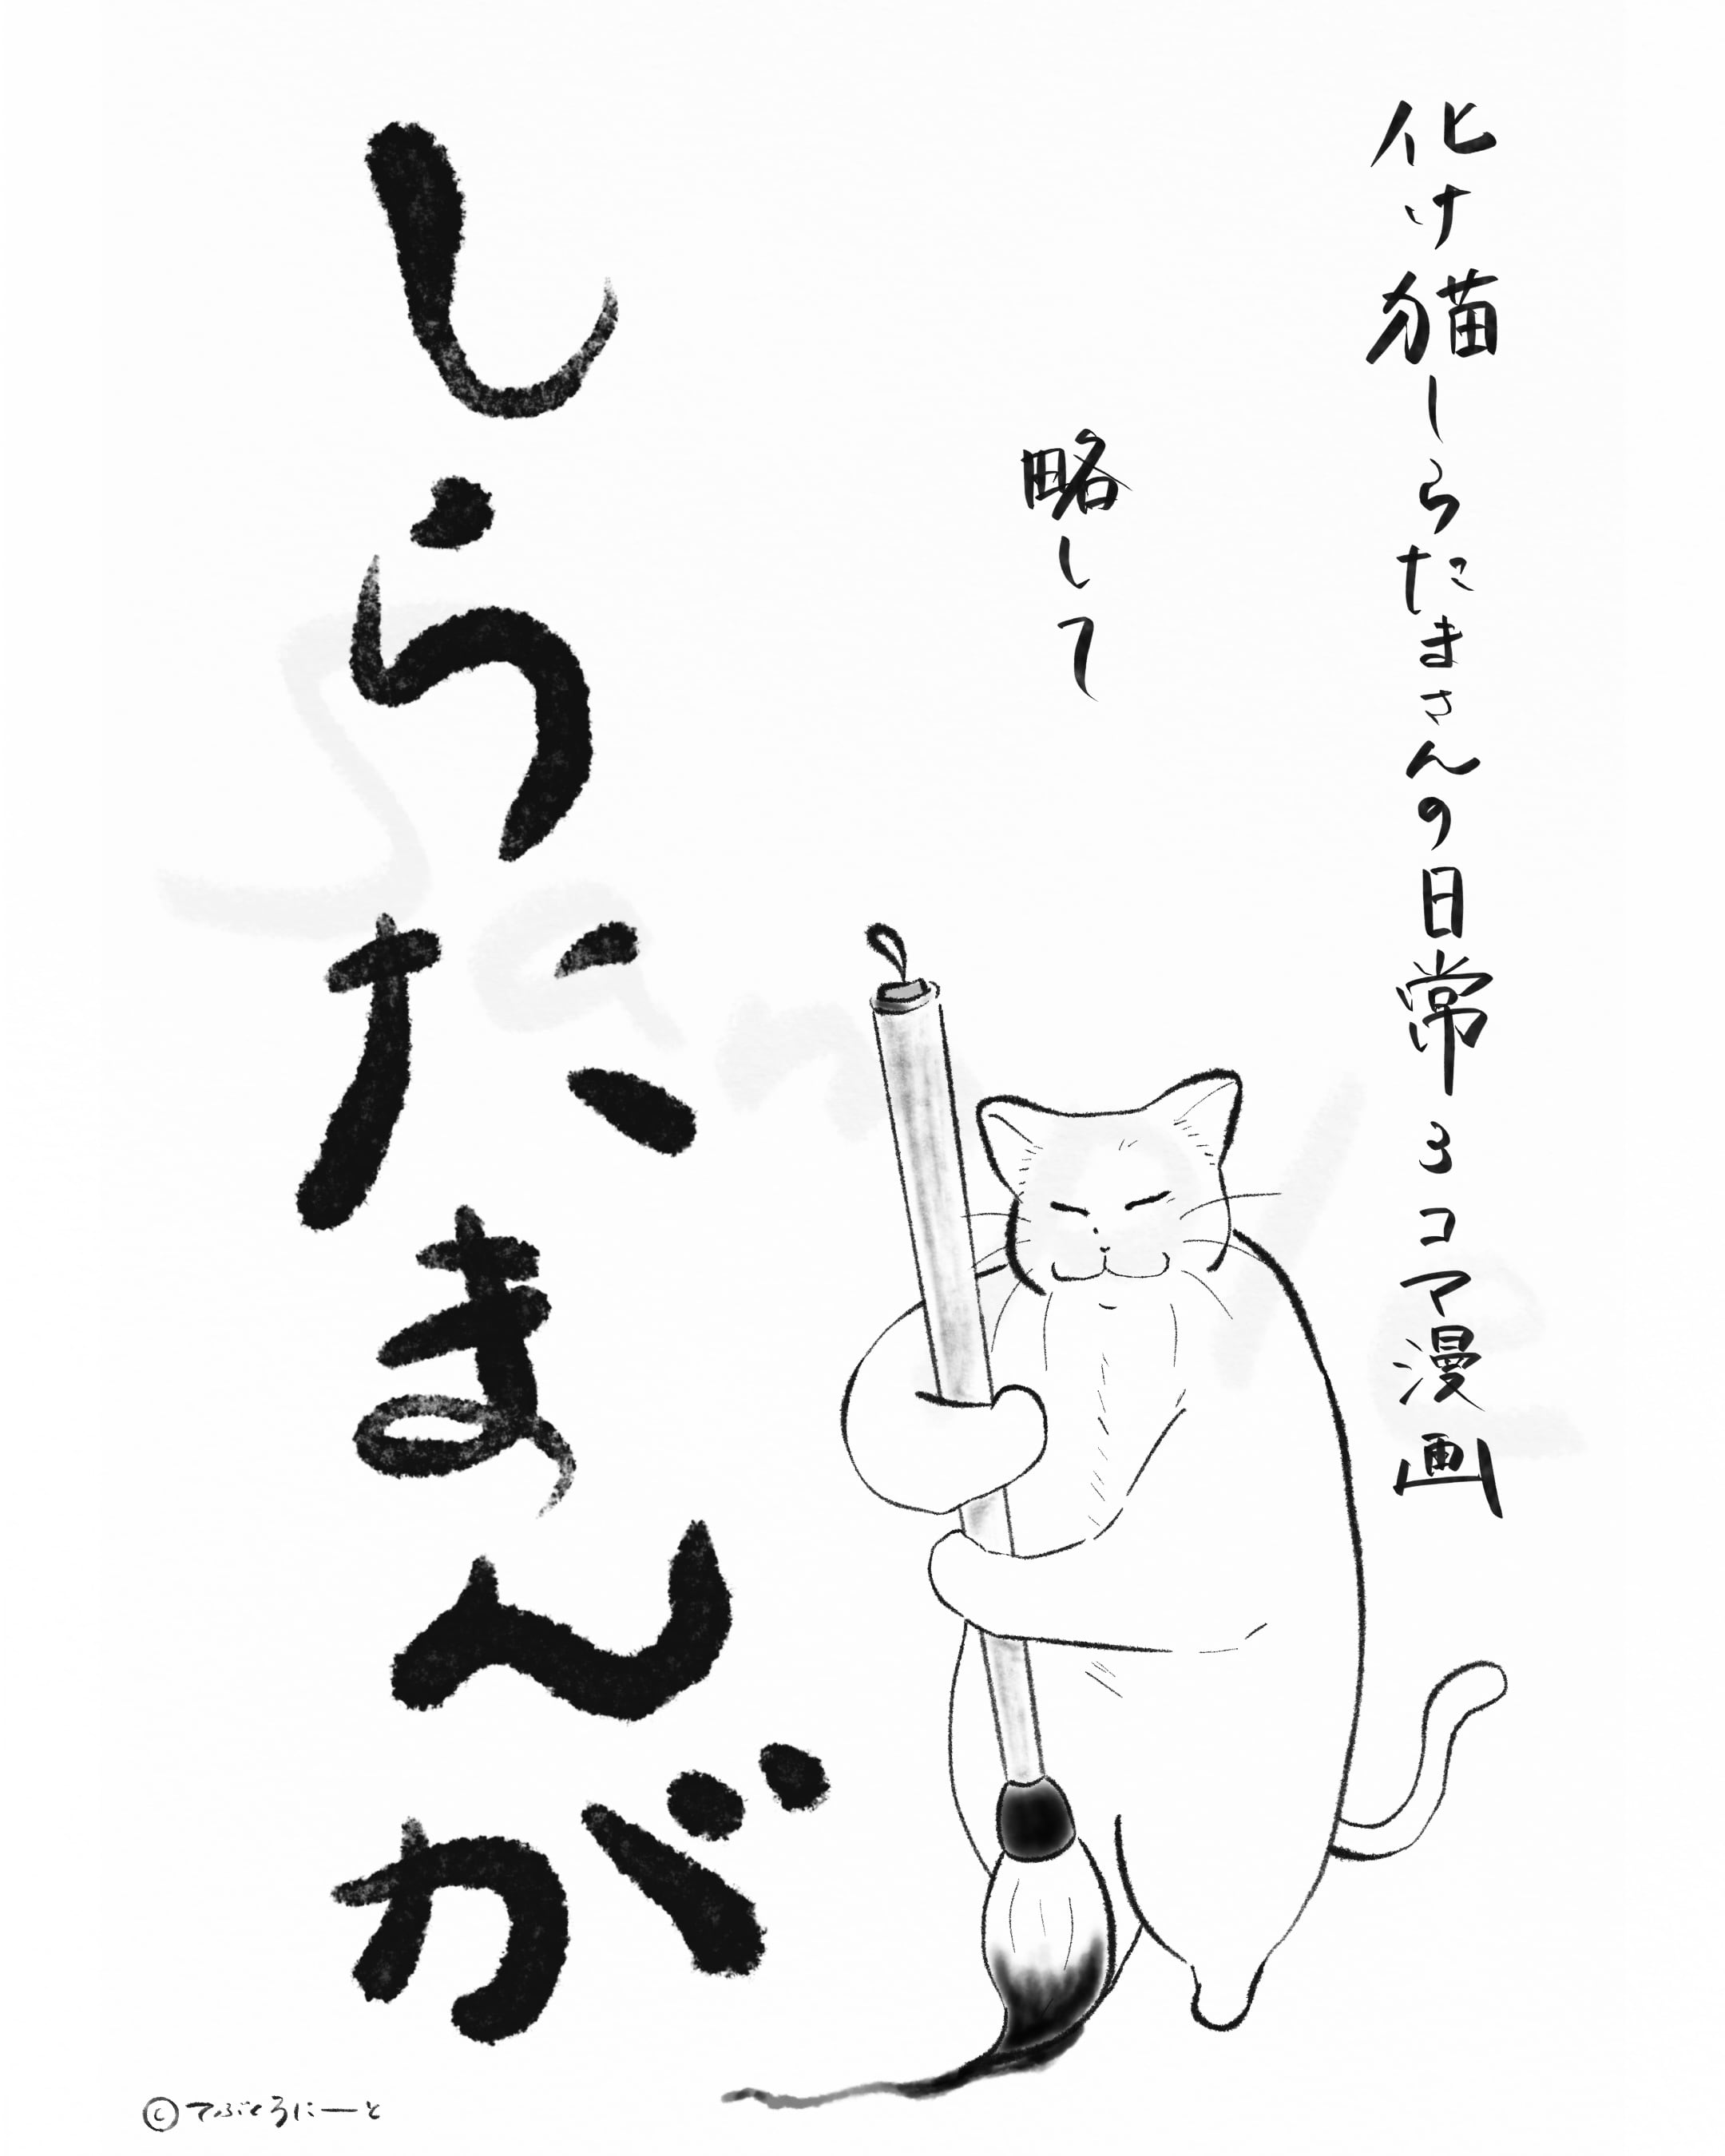 化け猫しらたまさんの日常3コマ漫画
略して
しらたまんが
Sample
©でぶとろにーと